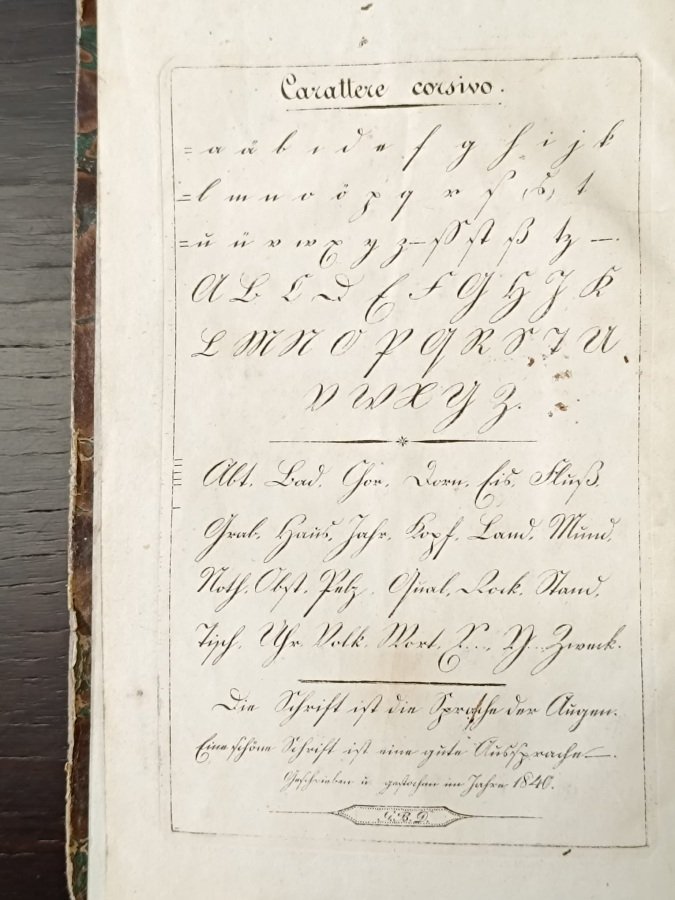 Carattere corsivo.
= a ä b c d e f g h i j k
= l m n o ö p q r ſ (s) t
= u ü v w x y z — ſſ ſt ß tz —.
A B C D E F G H J K
L M N O P Q R S T U
V W X Y Z.
Abt. Bad. Chor. Dorn. Eis. Fluß.
Grab. Haus. Jahr. Kopf. Land. Mund.
Noth. Obſt. Pelz. Qual. Rock. Stand.
Tiſch. Uhr. Volk. Wort. X... Y... Zweck.
Die Schrift iſt die Sprache der Augen.
Eine ſchöne Schrift iſt eine gute Ausſprache —.
Geſchrieben u. geſtochen im Jahre 1840.
G. B. D.